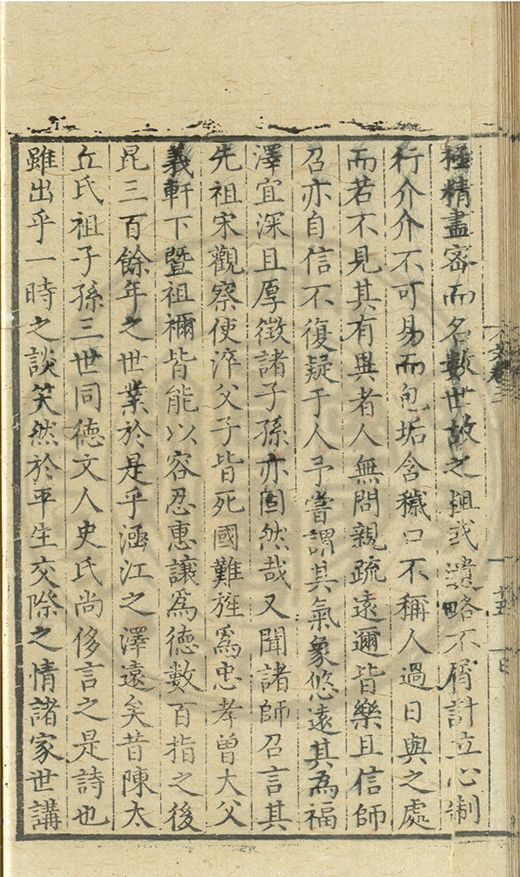 極精盡密而名數世故之粗或遺略不屑計立心制
行介介不可易而包垢含穢口不稱人過日與之處
而若不見其有異者人無問親疏遠邇皆樂且信師
召亦自信不復疑于人予嘗謂其氣象悠遠其為福
澤宜深且厚徵諸子孫亦固然哉又聞諸師召言其
先祖宋觀察使淬父子皆死國難旌爲忠孝曾大父
義軒下暨祖禰皆能以容忍惠讓爲德數百指之後
昆三百餘年之世業於是乎涵江之澤遠矣昔陳太
丘氏祖子孫三世同德文人史氏尚侈言之是詩也
雖出乎一時之談笑然於平生交際之情諸家世講